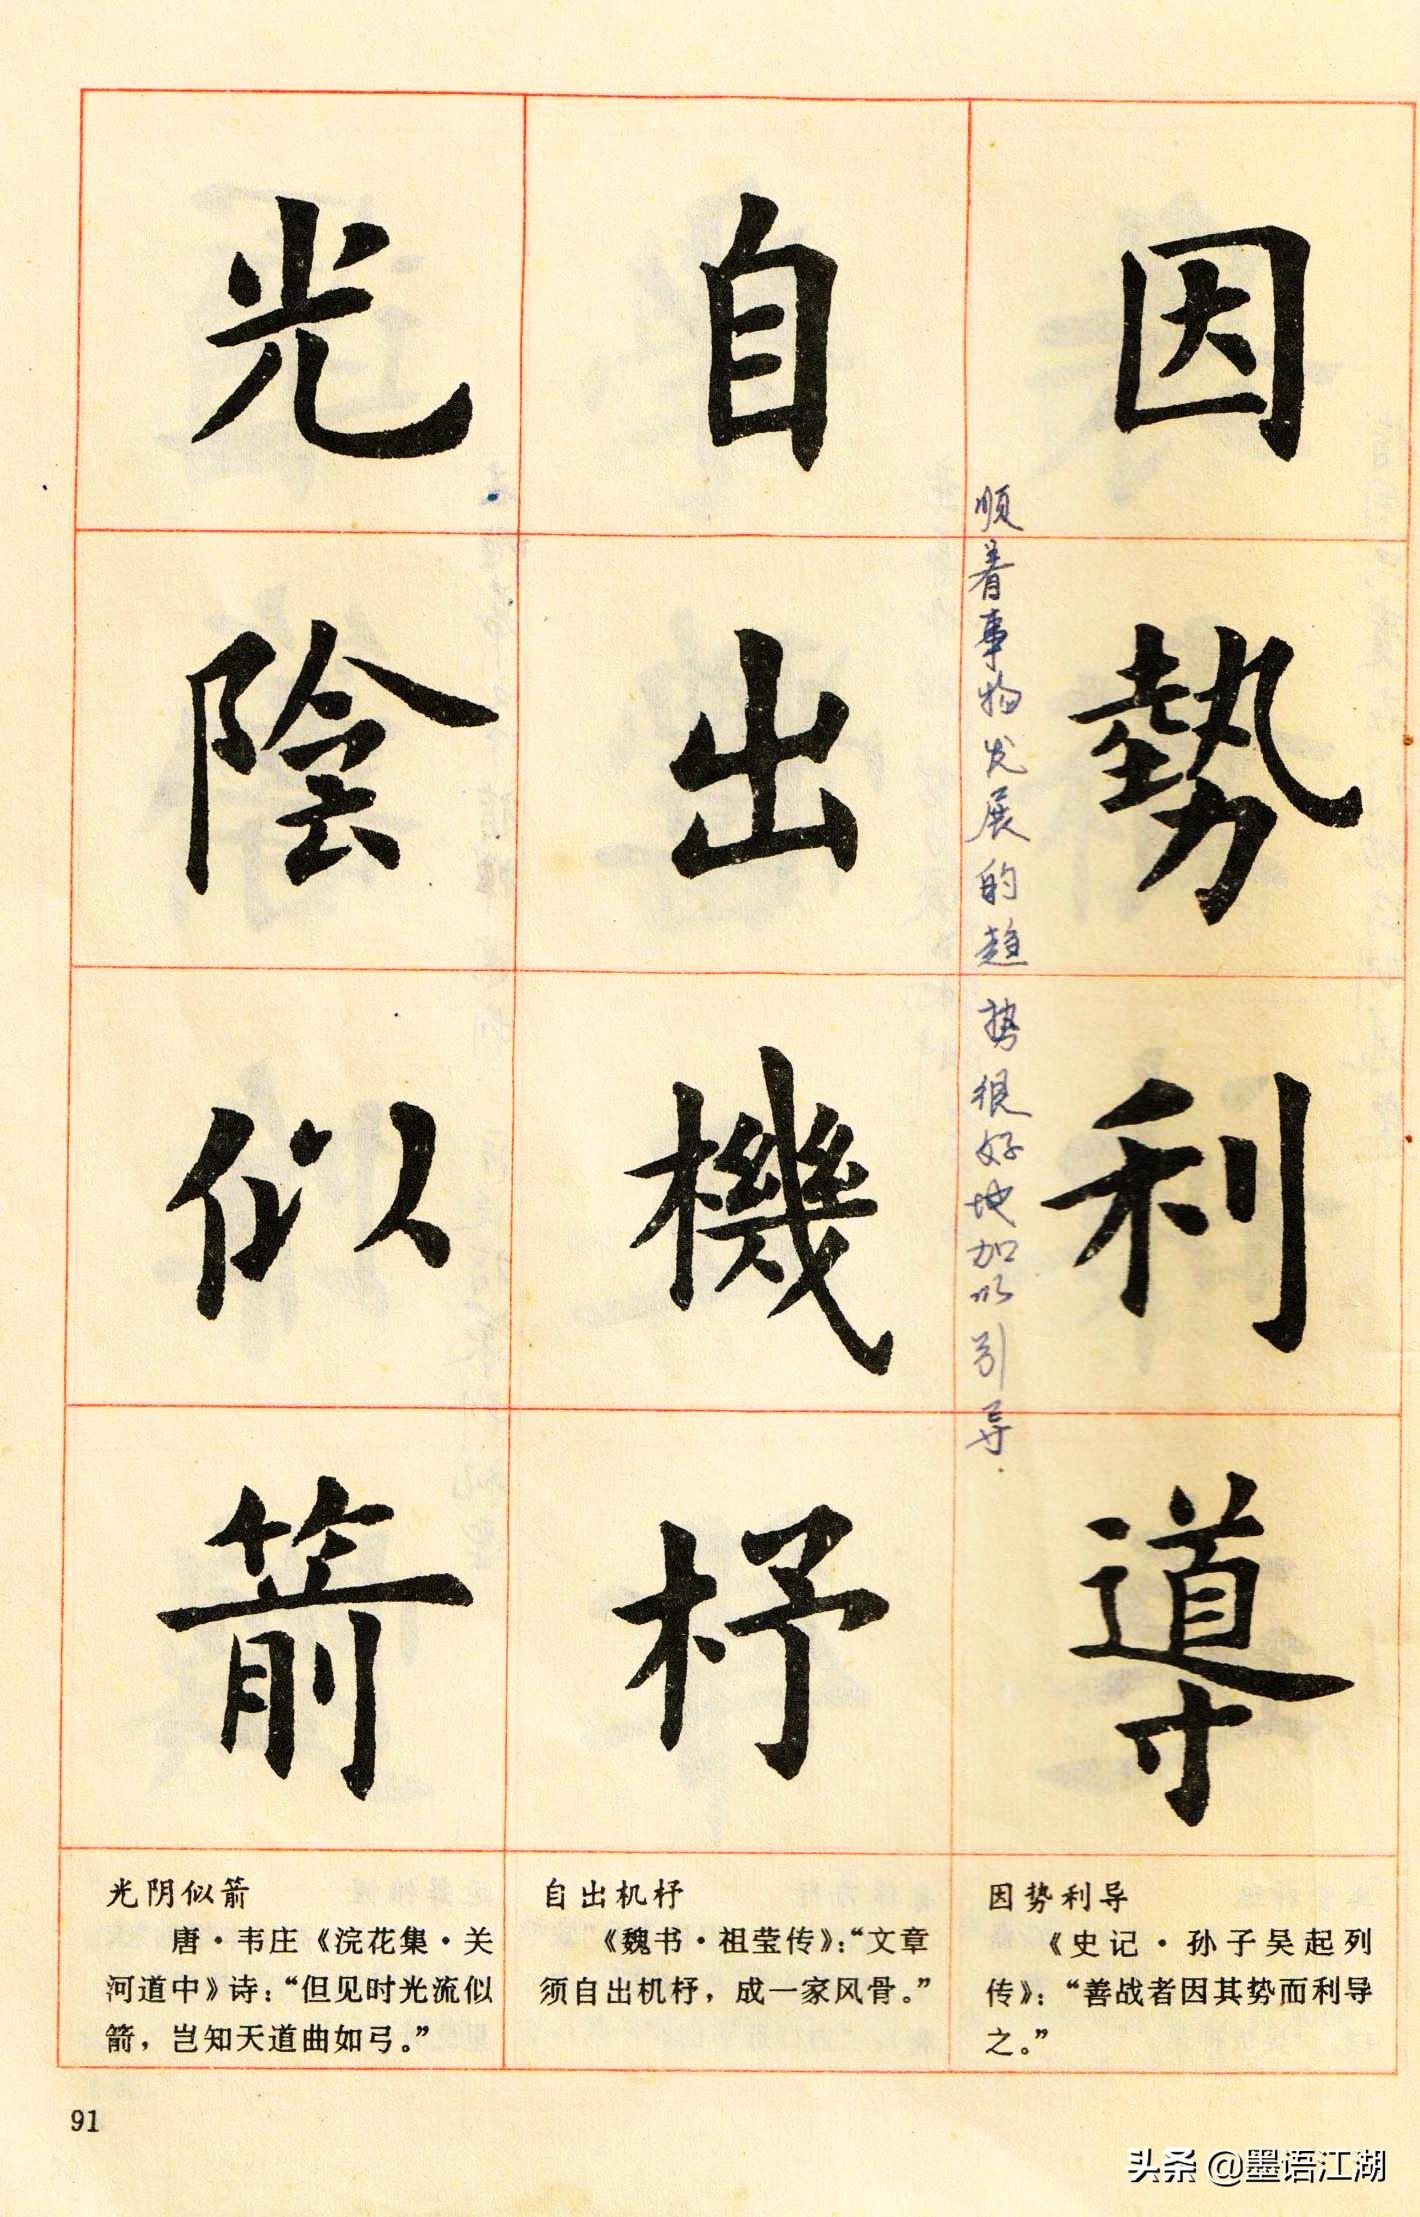 因勢利導
顺着事物发展的趋势很好地加以引导.
自出機杼
光陰似箭
因势利导
《史记·孙子吴起列
传》：“善战者因其势而利导
之。”
自出机杼
《魏书·祖莹传》：“文章
须自出机杼，成一家风骨。”
光阴似箭
唐·韦庄《浣花集·关
河道中》诗：“但见时光流似
箭，岂知天道曲如弓。”
91
头条 @墨语江湖